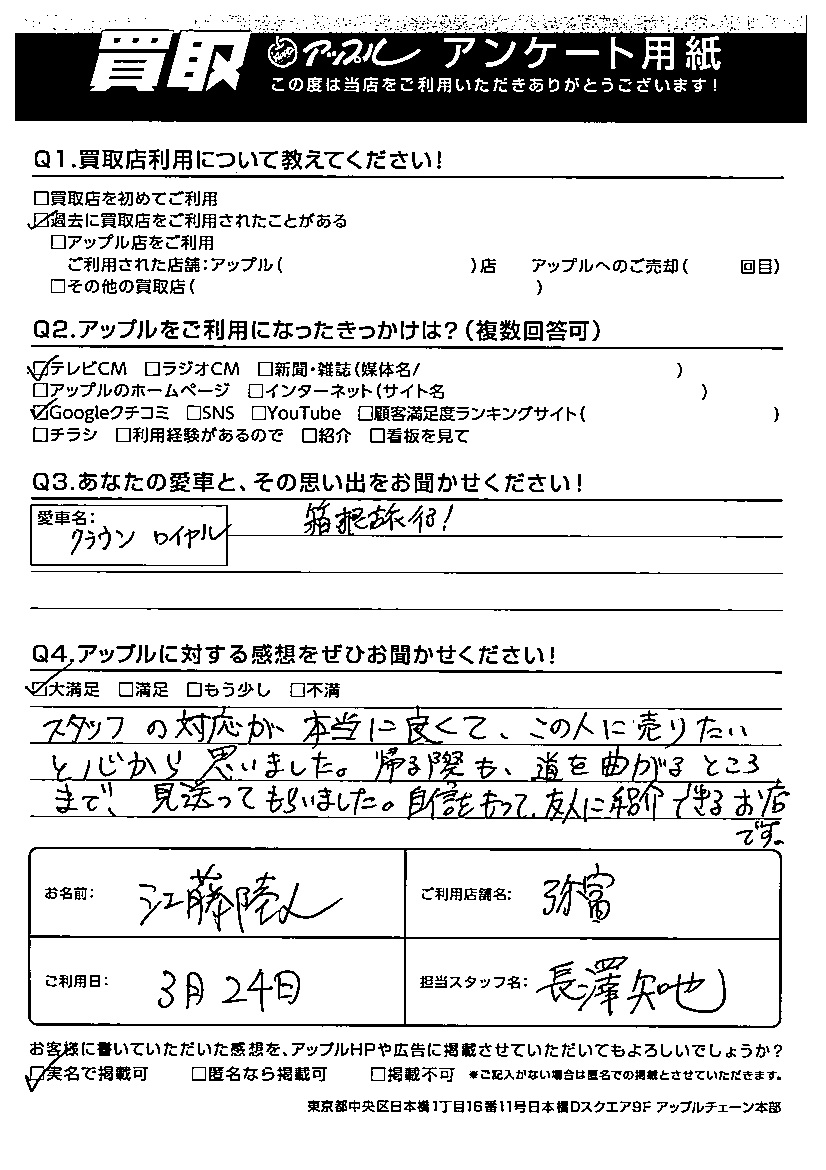 買取 アップル アンケート用紙
この度は当店をご利用いただきありがとうございます！
Q1.買取店利用について教えてください！
□買取店を初めてご利用
☑過去に買取店をご利用されたことがある
□アップル店をご利用
ご利用された店舗：アップル（　　　）店　アップルへのご売却（　　　回目）
□その他の買取店（　　　）
Q2.アップルをご利用になったきっかけは？（複数回答可）
☑テレビCM □ラジオCM □新聞・雑誌（媒体名/　　　）
□アップルのホームページ □インターネット（サイト名　　　）
☑Googleクチコミ □SNS □YouTube □顧客満足度ランキングサイト（　　　）
□チラシ □利用経験があるので □紹介 □看板を見て
Q3.あなたの愛車と、その思い出をお聞かせください！
愛車名：クラウン ロイヤル
箱根旅行！
Q4.アップルに対する感想をぜひお聞かせください！
☑大満足 □満足 □もう少し □不満
スタッフの対応が本当に良くて、この人に売りたい
と心から思いました。帰る際も、道を曲がるところ
まで、見送ってもらいました。自信をもって、友人に紹介できるお店
です。
お名前：江藤陸人
ご利用店舗名：弥富
ご利用日：3月24日
担当スタッフ名：長澤知也
お客様に書いていただいた感想を、アップルHPや広告に掲載させていただいてもよろしいでしょうか？
☑実名で掲載可 □匿名なら掲載可 □掲載不可 ※ご記入がない場合は匿名での掲載とさせていただきます。
東京都中央区日本橋1丁目16番11号日本橋Dスクエア9F アップルチェーン本部